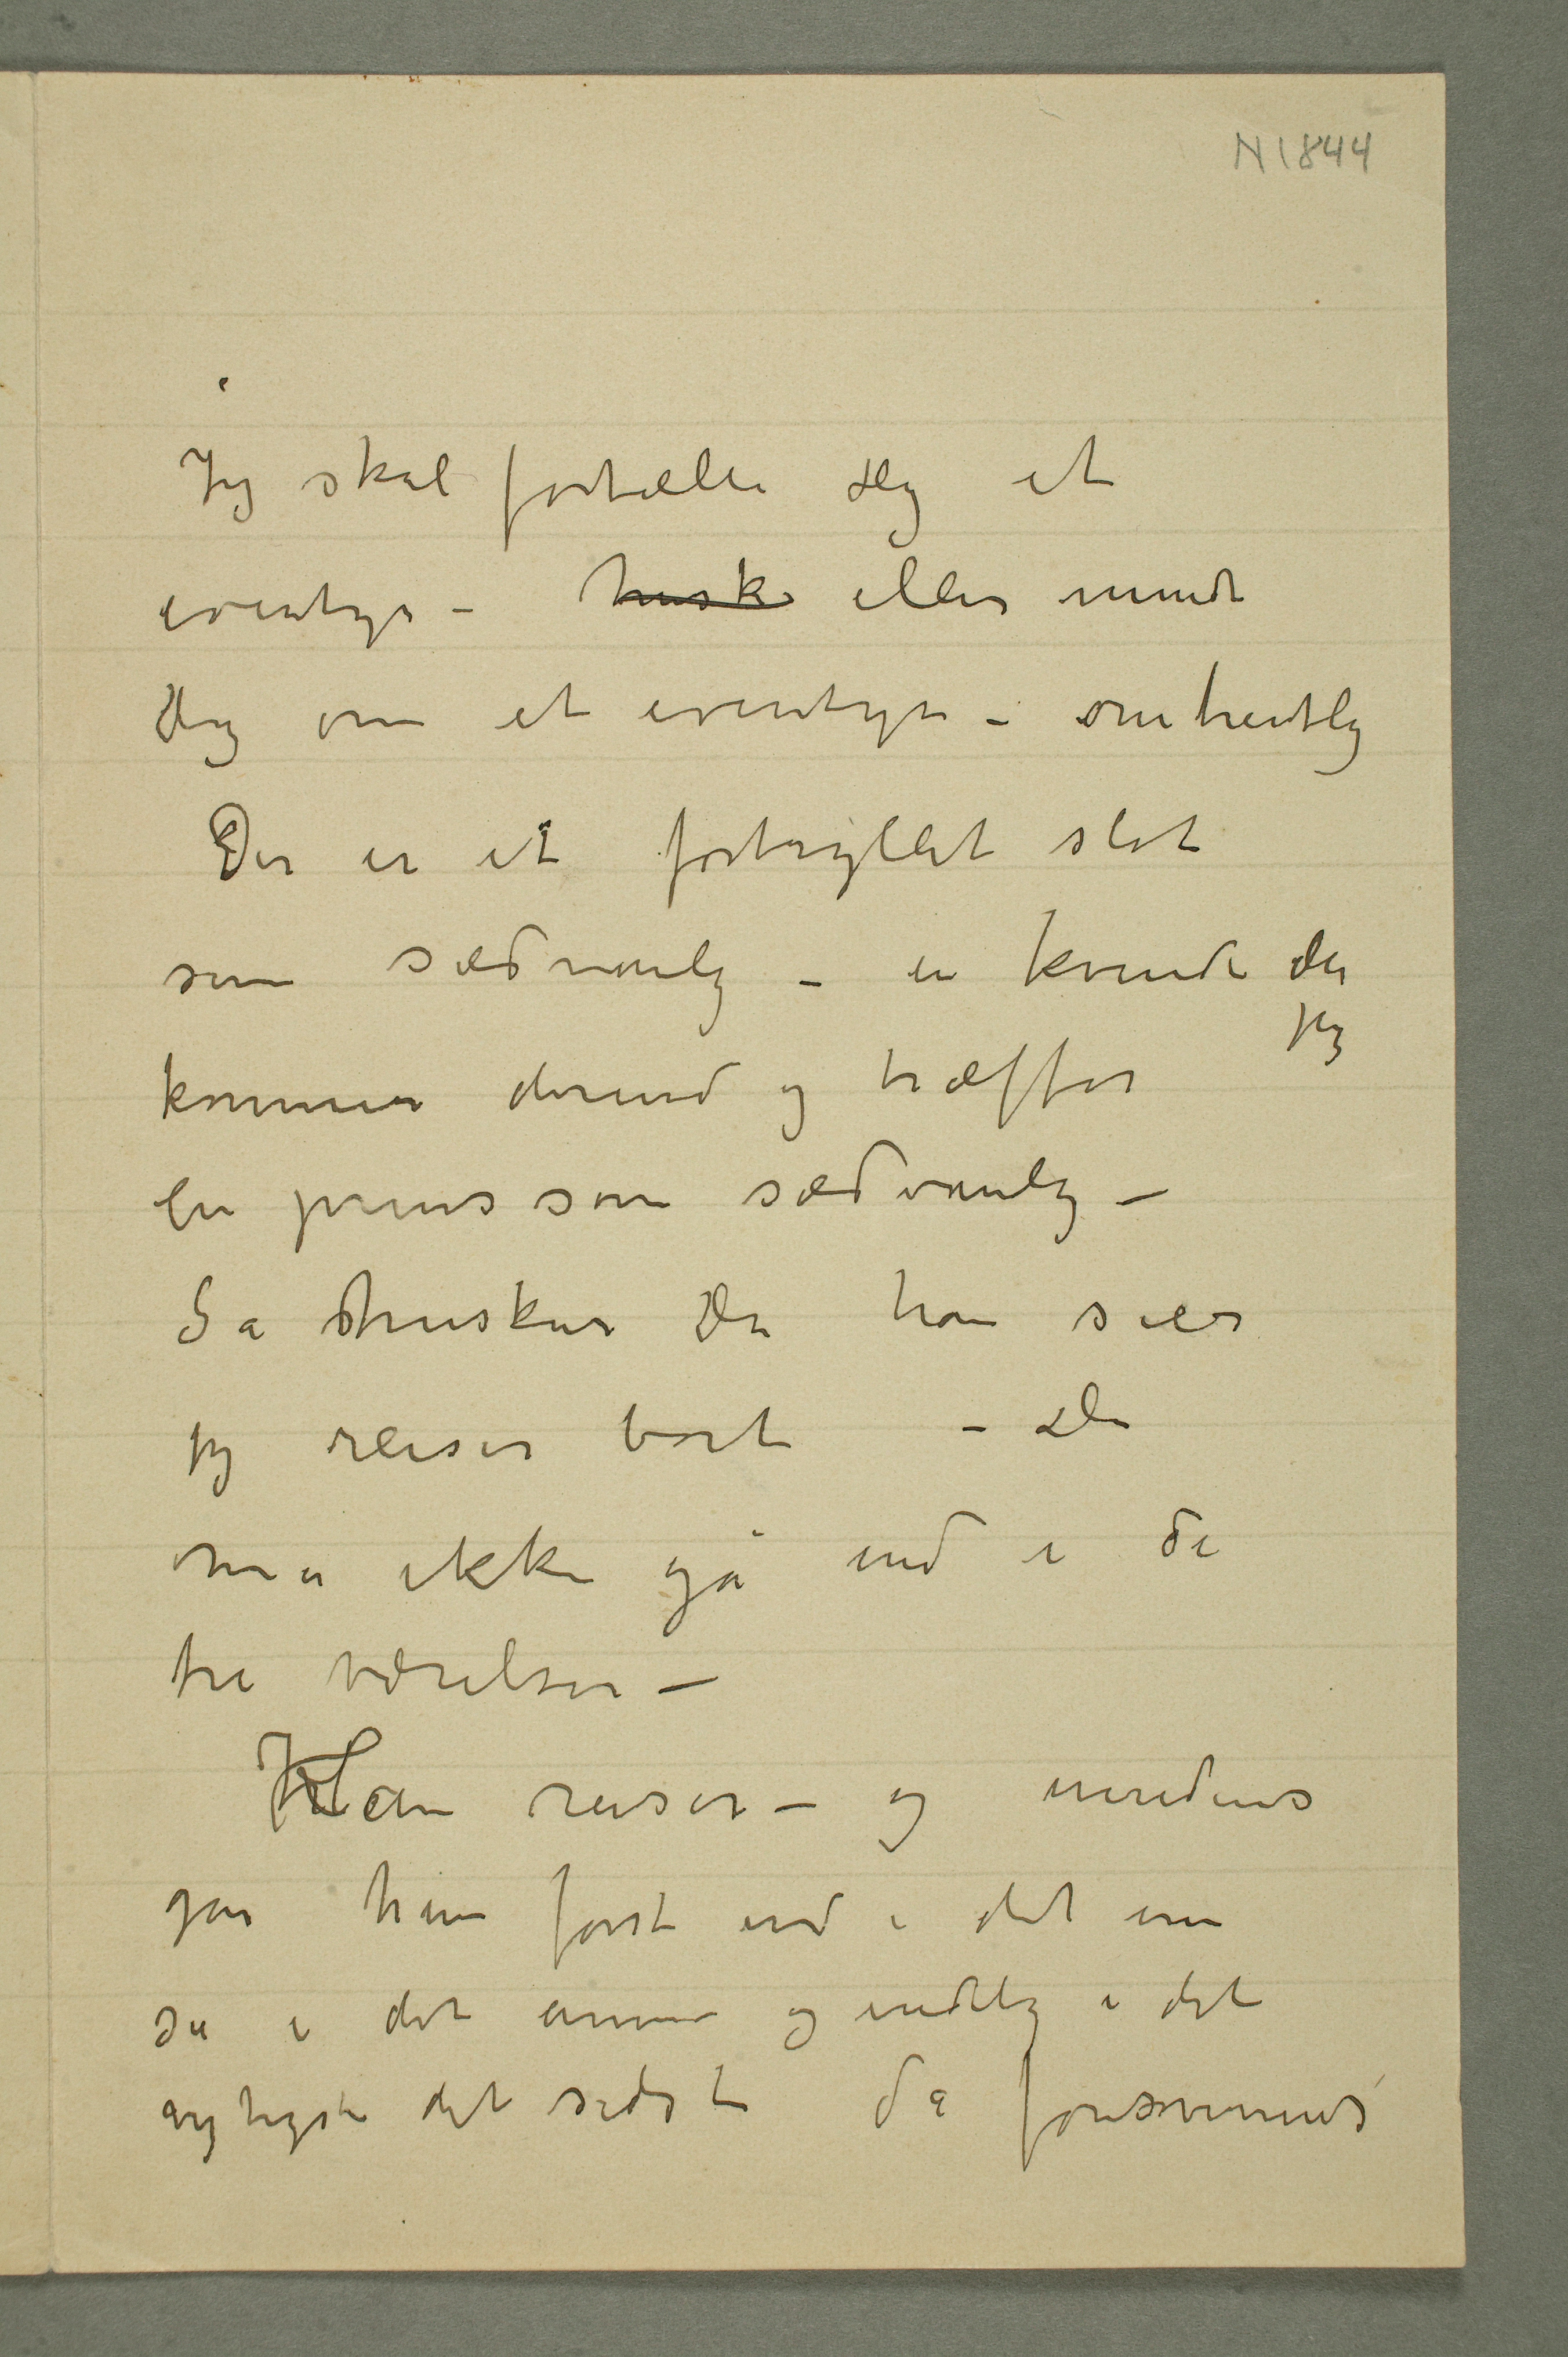 N 1844
Jeg skal fortælle dig et
eventyr – husk eller minde
dig om et eventyr – omtrentlig
Der er et fortryllet slot
som sædvanlig – en kvinde der
jeg
kommer derind og træffer
en prins som sædvanlig –
Så husker du han sier
jeg reiser bort – Du
må ikke gå ind i de
tre værelser –
Han reiser – og imidens
går hun først ind i det ene
så i det annen og endelig i det
det sidste da forsvinner